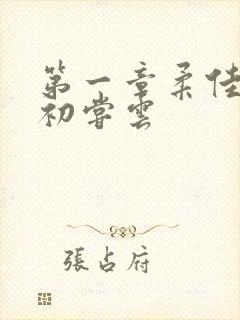 第一章柔佳
初嘗雲
張占府